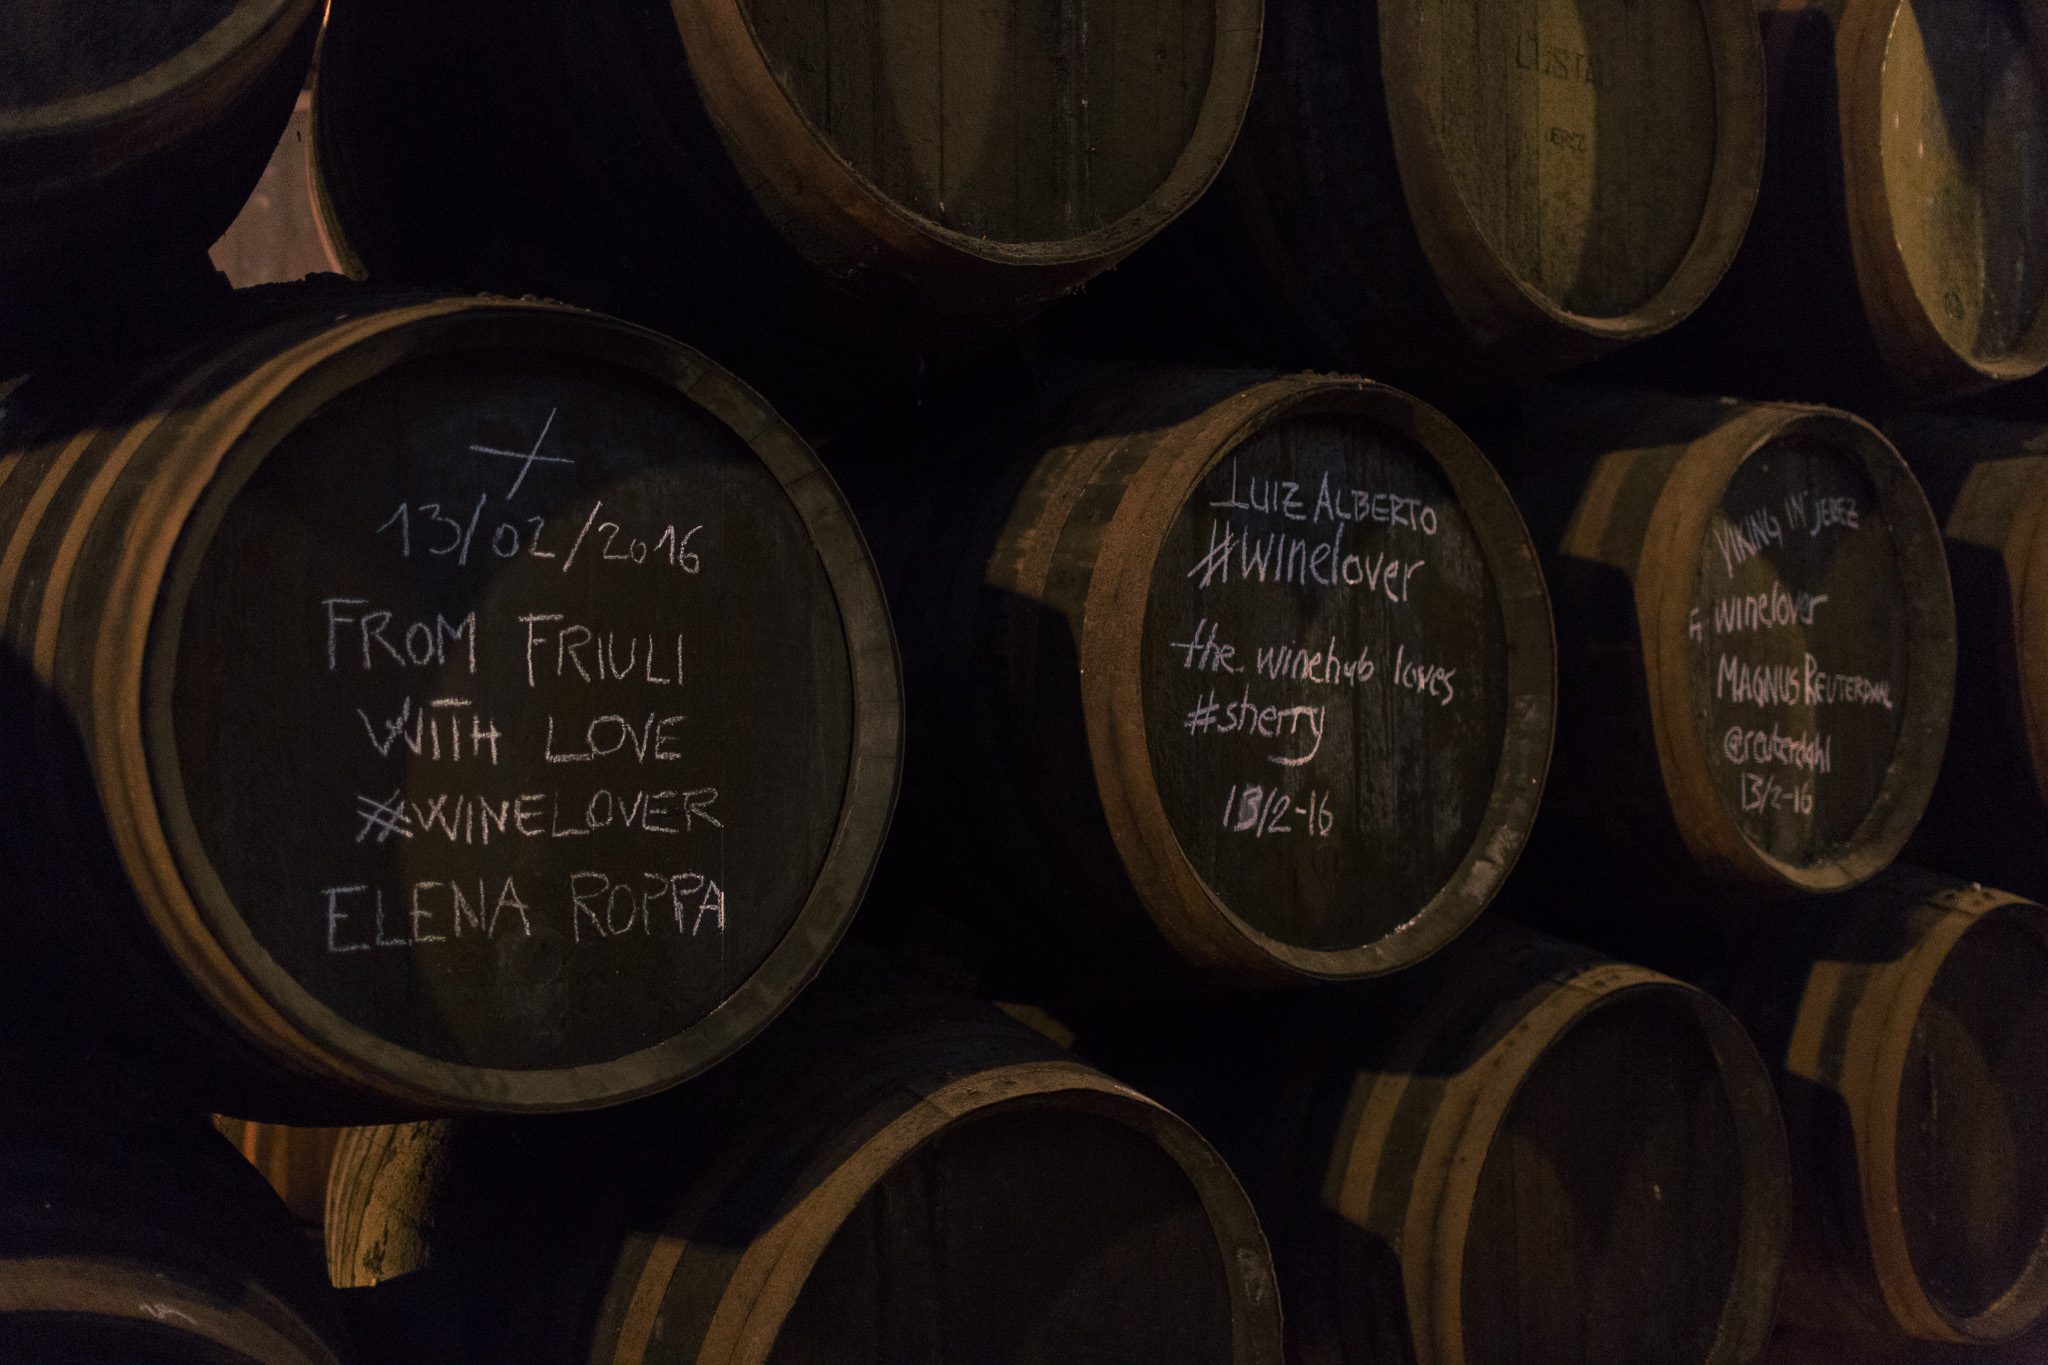 13/02/2016
FROM FRIULI
WITH LOVE
#WINELOVER
ELENA ROPPA
LUIZ ALBERTO
#winelover
the winehub loves
#sherry
13/2-16
VIKING IN JEREZ
# winelover
MAGNUS REUTERDAHL
@reuterdahl
13/2-16